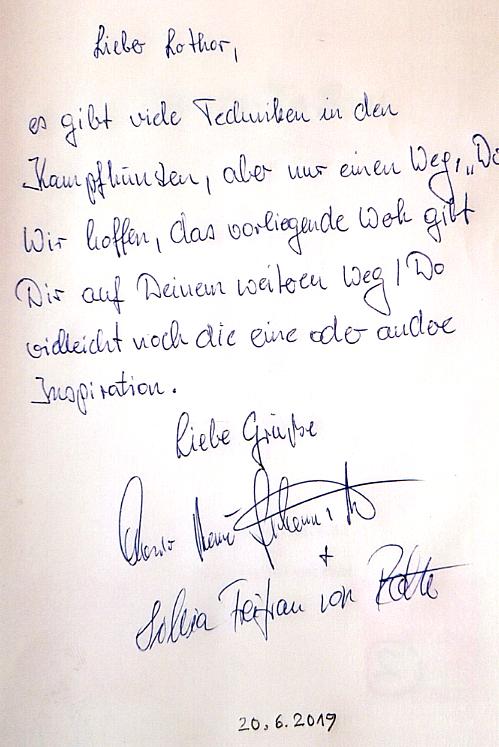 Lieber Lothar,
es gibt viele Techniken in den
Kampfkünsten, aber nur einen Weg, „Do
Wir hoffen, das vorliegende Werk gibt
Dir auf Deinem weiteren Weg / Do
vielleicht noch die eine oder andere
Inspiration.
Liebe Grüße
+
Freifrau von
20.6.2019